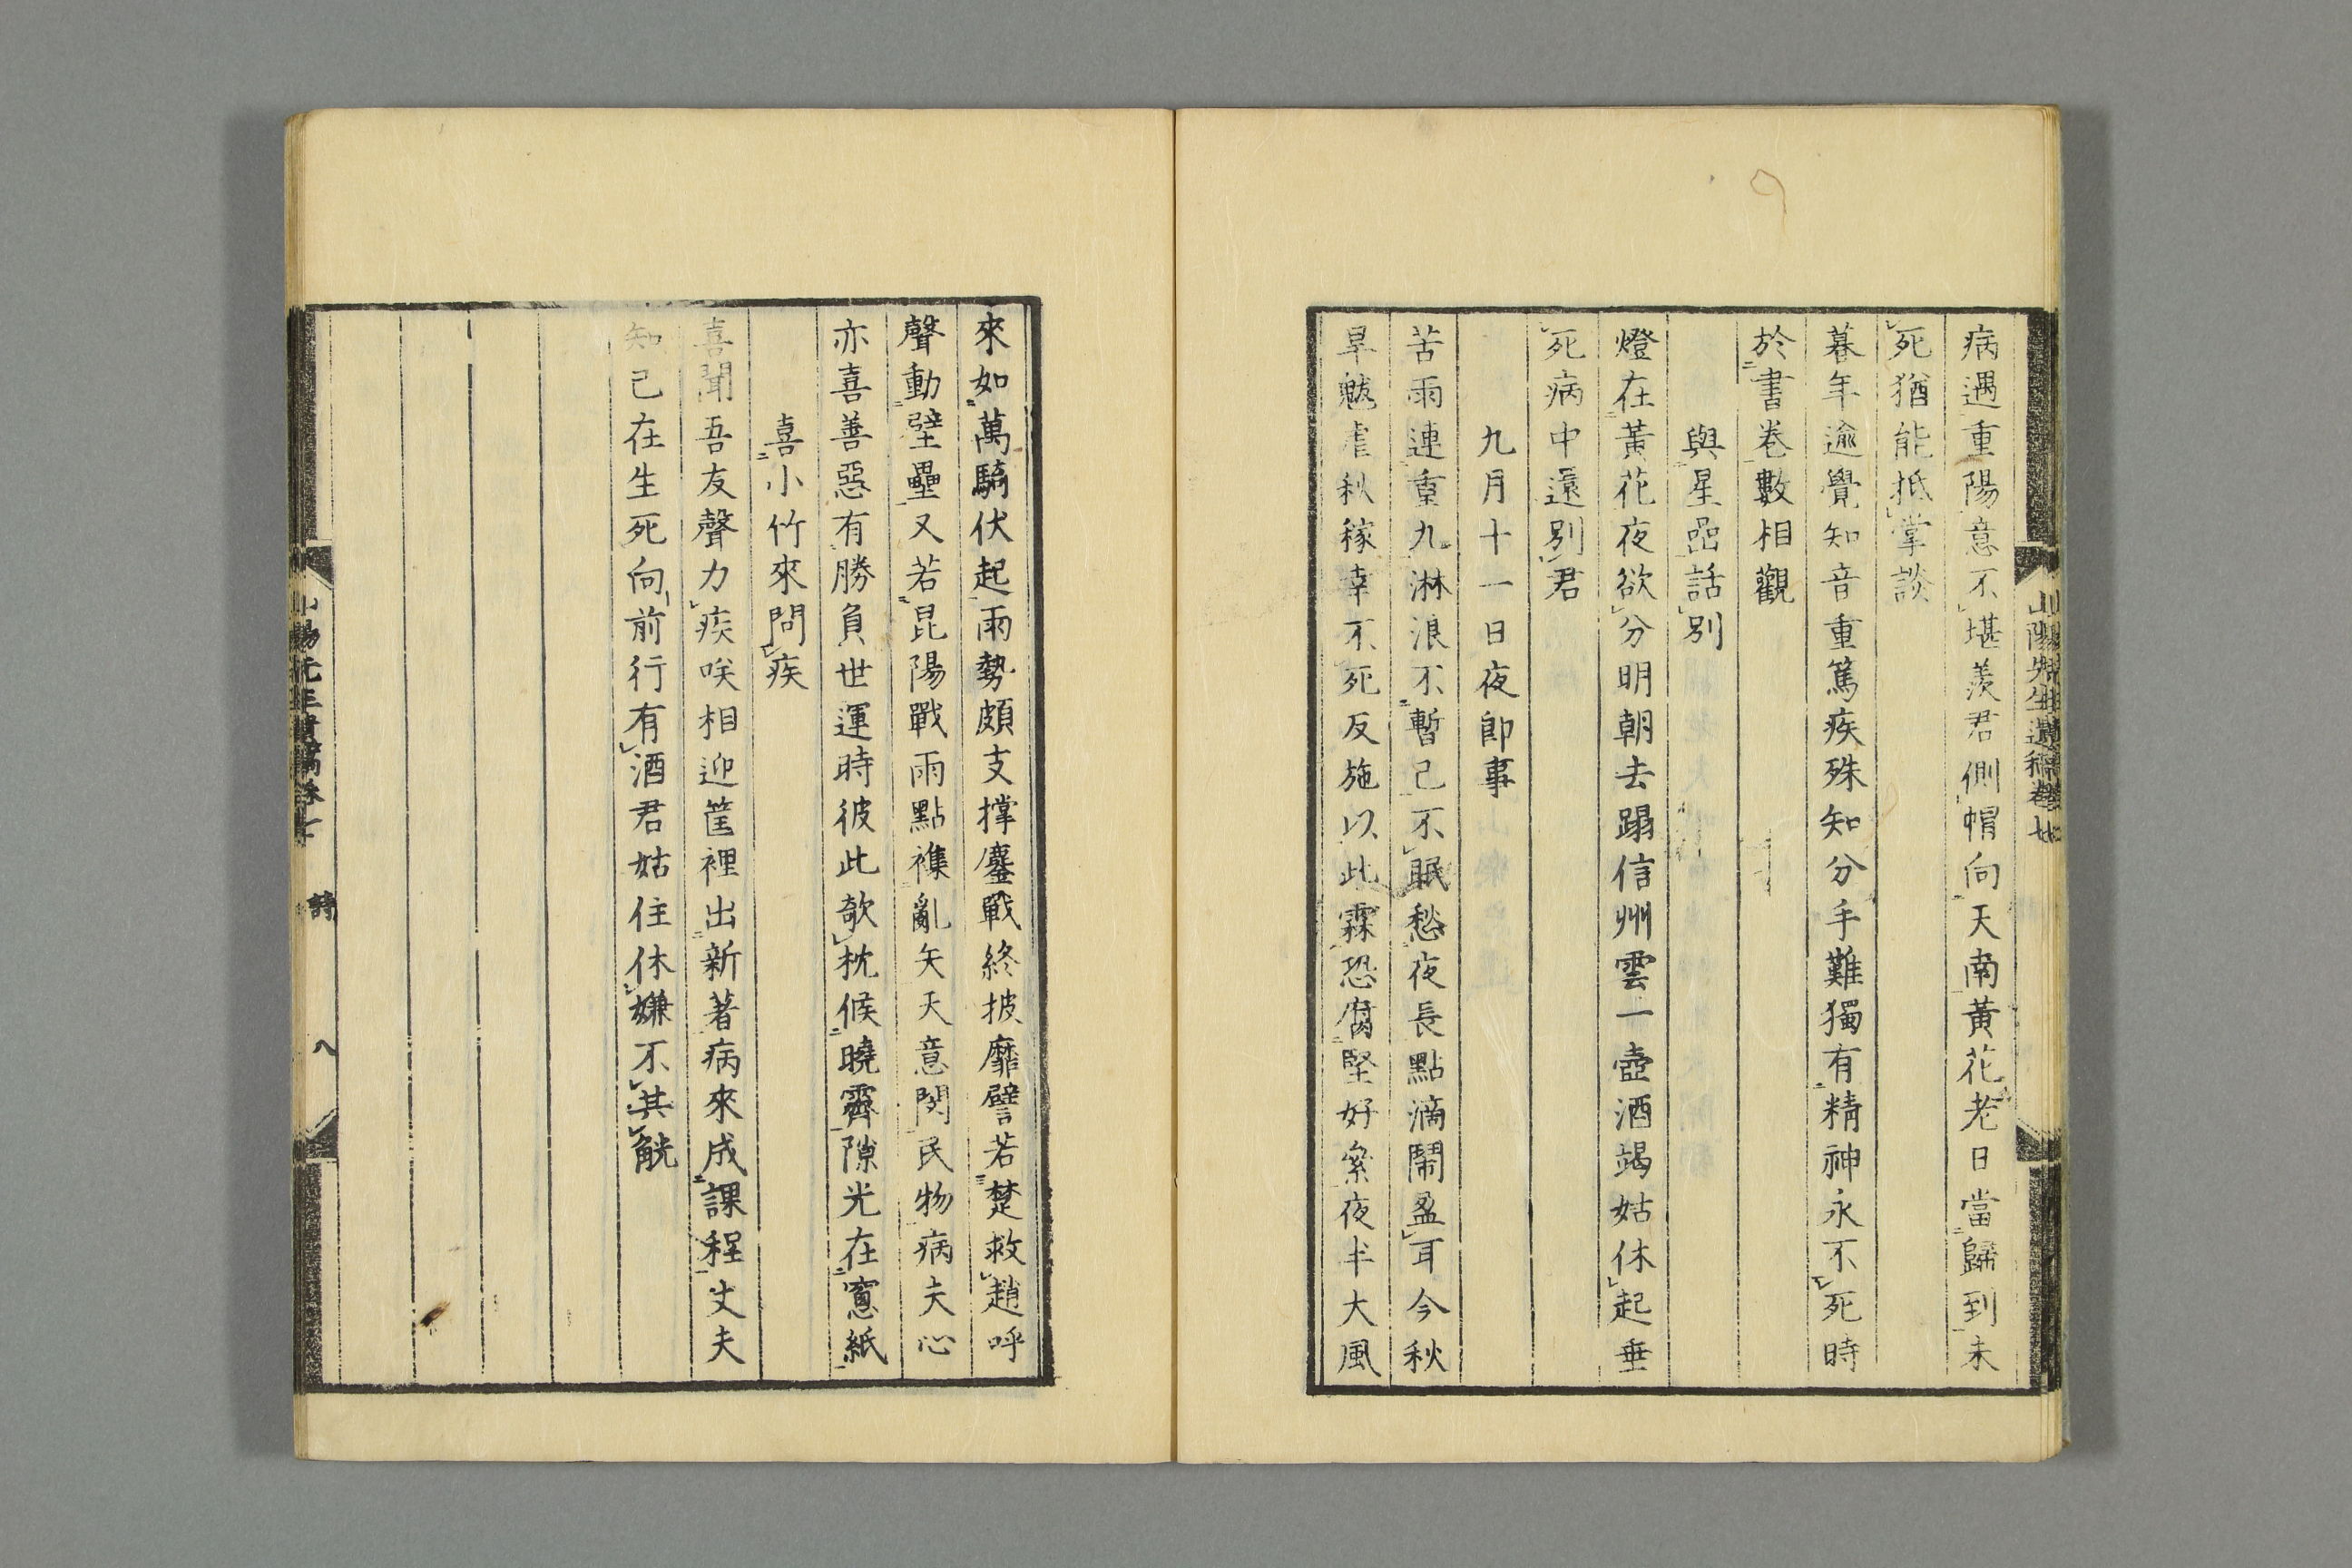 山陽先生遺稿卷七
病遇重陽意不堪羨君側帽向天南黃花老日當歸到未
死猶能抵掌談
暮年逾覺知音重篤疾殊知分手難獨有精神永不死時
於書卷數相觀
與星喦話別
燈在黃花夜欲分明朝去蹋信州雲一壺酒竭姑休起垂
死病中還別君
九月十一日夜卽事
苦雨連重九淋浪不暫已不眠愁夜長點滴鬧盈耳今秋
旱魃虐秋稼幸不死反施以此霖恐腐堅好粢夜半大風
來如萬騎伏起雨勢頗支撐鏖戰終披靡譬若楚救趙呼
聲動壁壘又若昆陽戰雨點襍亂矢天意関民物病夫心
亦喜善惡有勝負世運時彼此欹枕候曉霽隙光在窻紙
喜小竹來問疾
喜聞吾友聲力疾唉相迎筐裡出新著病來成課程丈夫
知己在生死向前行有酒君姑住休嫌不共觥
山陽先生遺稿卷七 詩 八